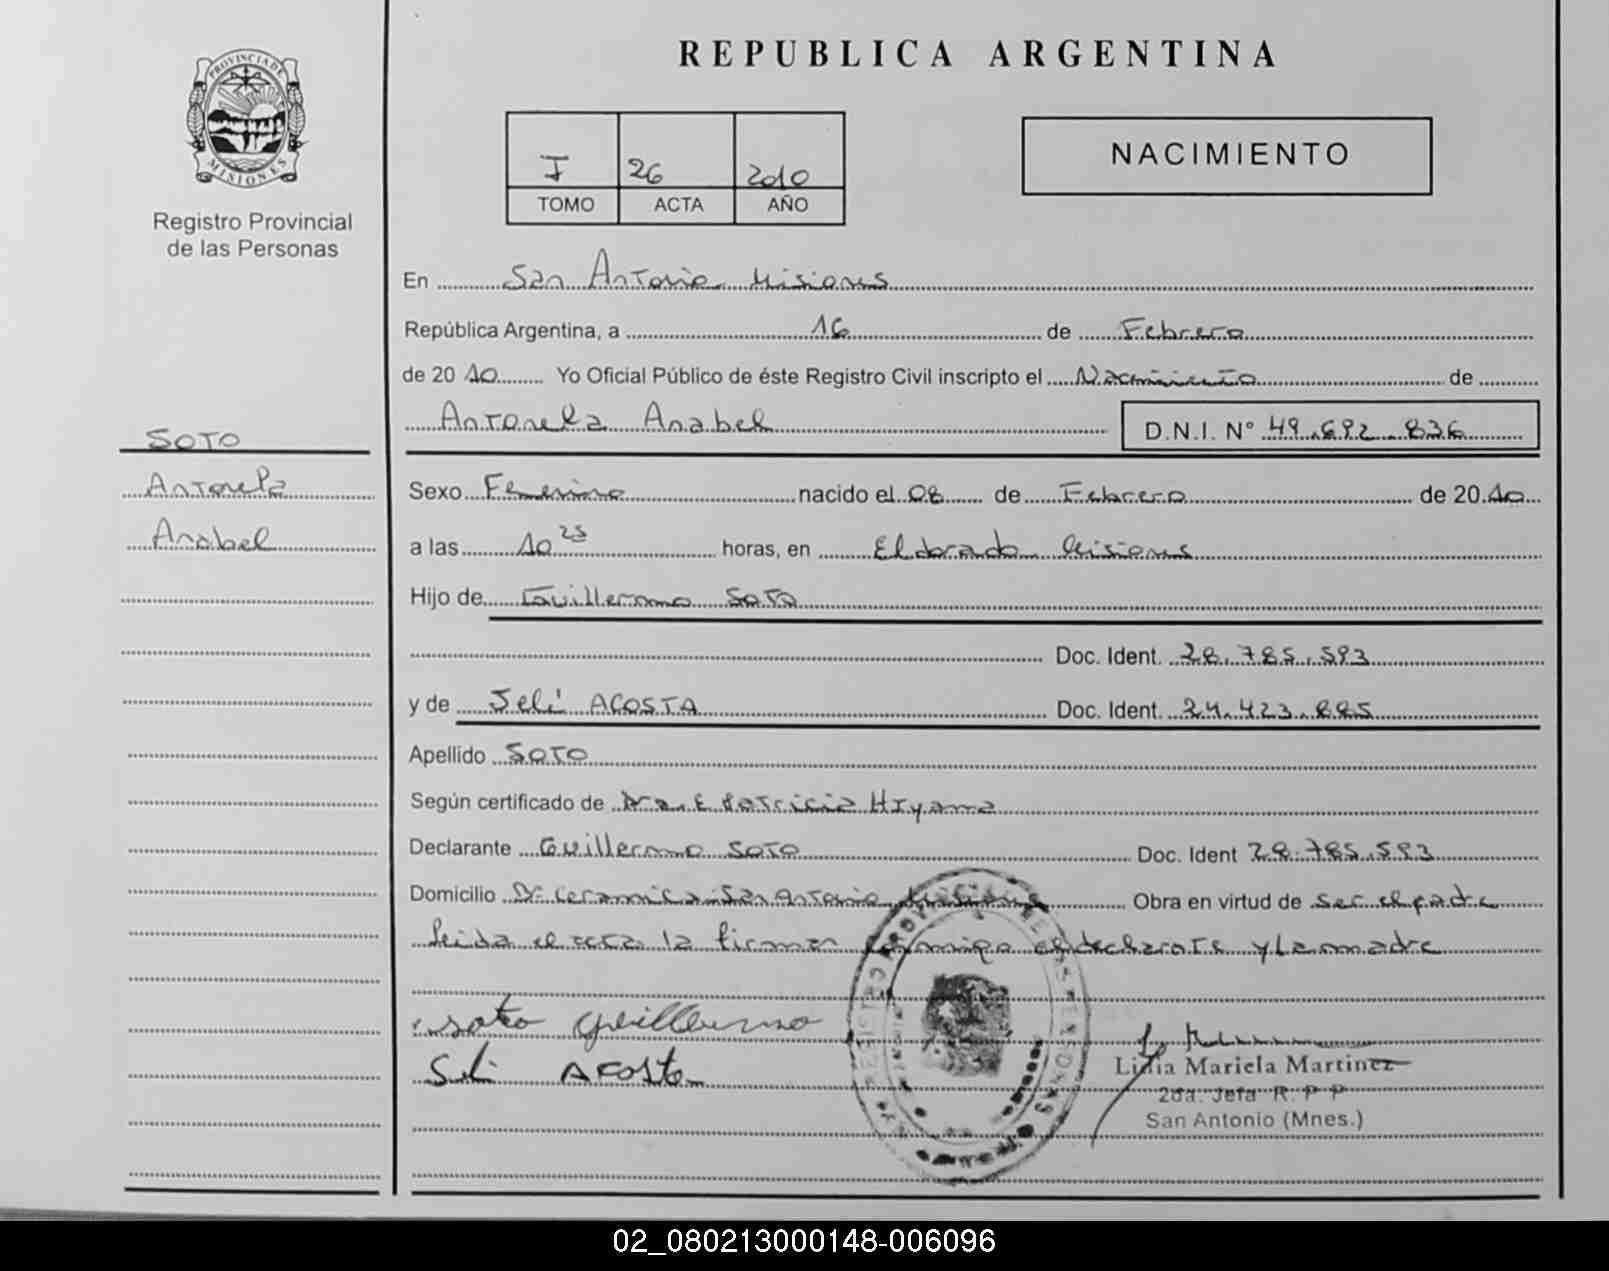 REPUBLICA ARGENTINA
PROVINCIA DE MISIONES
Registro Provincial
de las Personas
I 26 2010
TOMO ACTA AÑO
NACIMIENTO
En San Antonio Misiones
República Argentina, a 16 de Febrero
de 20 10 Yo Oficial Público de éste Registro Civil inscripto el Nacimiento de
Antonela Anabel D.N.I. N° 49.692.836
SOTO
Antonela
Anabel
Sexo Femenino nacido el 08 de Febrero de 20 10
a las 10 25 horas, en Eldorado Misiones
Hijo de Guillermo SOTO
Doc. Ident. 28.785.593
y de Seli ACOSTA Doc. Ident. 24.423.885
Apellido SOTO
Según certificado de Dra. E Patricia Hiyama
Declarante Guillermo SOTO Doc. Ident 28.785.593
Domicilio Bº Ceramica San Antonio Misiones Obra en virtud de ser el padre
leida el acta la firman conmigo el declarate y la madre
soto guillermo
Seli Acosta
REGISTRO PROVINCIAL DE LAS PERSONAS
Lidia Mariela Martinez
2da. Jefa R. P P
San Antonio (Mnes.)
02_080213000148-006096